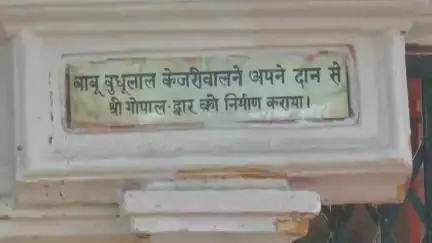 बाबू वुधूलाल केजरीवालने अपने दान से
श्री गोपाल-द्वार को निर्माण कराया।